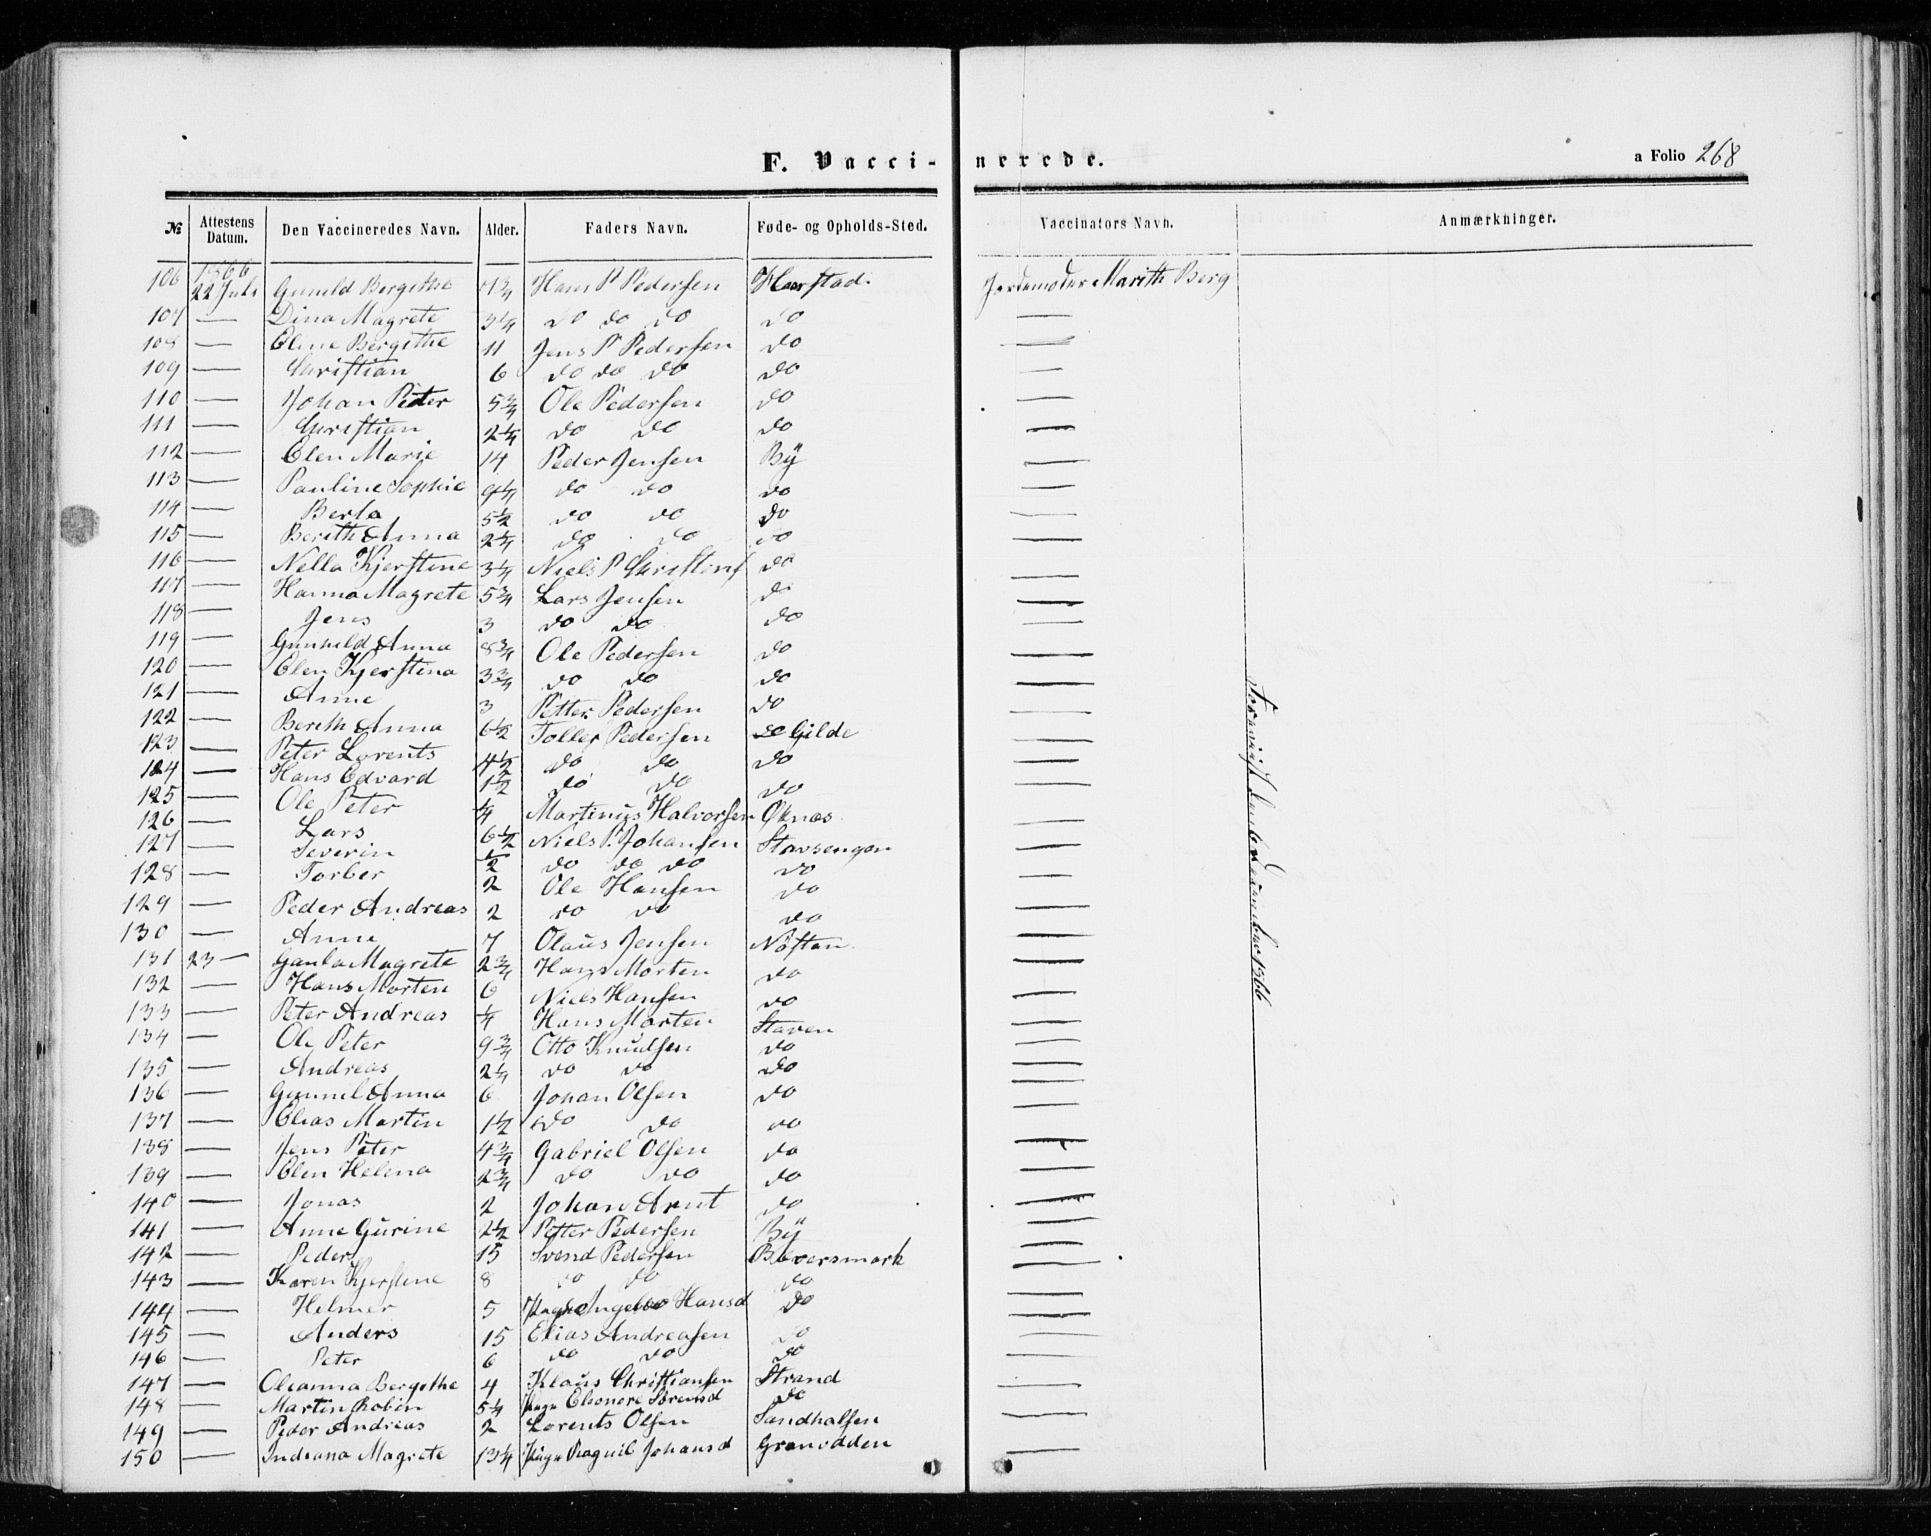 F. Vaccinerede.
a Folio 268
№ Attestens Datum. Den Vaccineredes Navn. Alder. Faders Navn. Føde- og Opholds-Sted. Vaccinators Navn. Anmærkninger.
1866
106 22 Juli Gunild Bergithe Hans P Pedersen Jordemoder Marith Berg
107 — Dina Magrete 3¼ do do do do —
108 — Elene Bergithe 11 Jens P Pedersen do —
109 — Christian 6 do do do do —
110 — Johan Peter 5¾ Ole Pedersen do —
111 — Christian 2¼ do do do —
112 — Elen Marie 14 Peder Jensen Bÿ —
113 — Pauline Sophie 9¼ do do do —
114 — Berta 5½ do do do —
115 — Berith Anna 2¼ do do do —
116 — Nella Kjerstine 3¼ Niels P Christens do —
117 — Hanna Magrete 5¾ Lars Jensen do —
118 — Jens 3 do do do —
119 — Gunhild Anna 8¾ Ole Pedersen do —
120 — Elen Kjerstina 3¾ do do do —
121 — Anne 3 Petter Pedersen do —
122 — Berith Anna 6½ Toller Pedersen Gilde —
123 — Peter Lorents 4½ do do do —
124 — Hans Edvard 1½ do do do —
125 — Ole Peter ¼ Martinus Halvorsen Øknæs —
126 — Lars 6½ Niels P. Johansen Stavsengen —
127 — Severin ½ do do do do —
128 — Torber 2 Ole Hansen do —
129 — Peder Andreas 2 do do do —
130 — Anne 7 Olaus Jensen Nøstan —
131 23 — Magrete 2¾ Hans Morten do —
132 — Hans Morten 6 Niels Hansen do —
133 — Peter Andreas ¼ Hans Morten Staven —
134 — Ole Peter 9¾ Otto Knudsen do —
135 — Andreas 2¼ do do do —
136 — Gunnil Anna 6 Johan Olsen do —
137 — Elias Martin 1½ do do do —
138 — Jens Peter 4¾ Gabriel Olsen do —
139 — Elen Helena 2¾ do do do —
140 — Jonas 2 Johan Arnt do —
141 — Anne Gurine 2½ Petter Pedersen Bÿ —
142 — Peder 15 Svend Pedersen Bæversmark —
143 — Karen Kjerstine 8 do do do —
144 — Helmer 5 Hansd do —
145 — Anders 15 Elias Andreasen do —
146 — Peter 6 do do do —
147 — Oleanna Bergithe 4 Klaus Christiansen Strand —
148 — Martin Robin 5¼ Pige Elionore Sørensd do —
149 — Peder Andreas 2 Lorents Olsen Sandhalsen —
150 — Indiana Magrete 13¼ Pige Ragnil Johansd Granodden —
December 1866